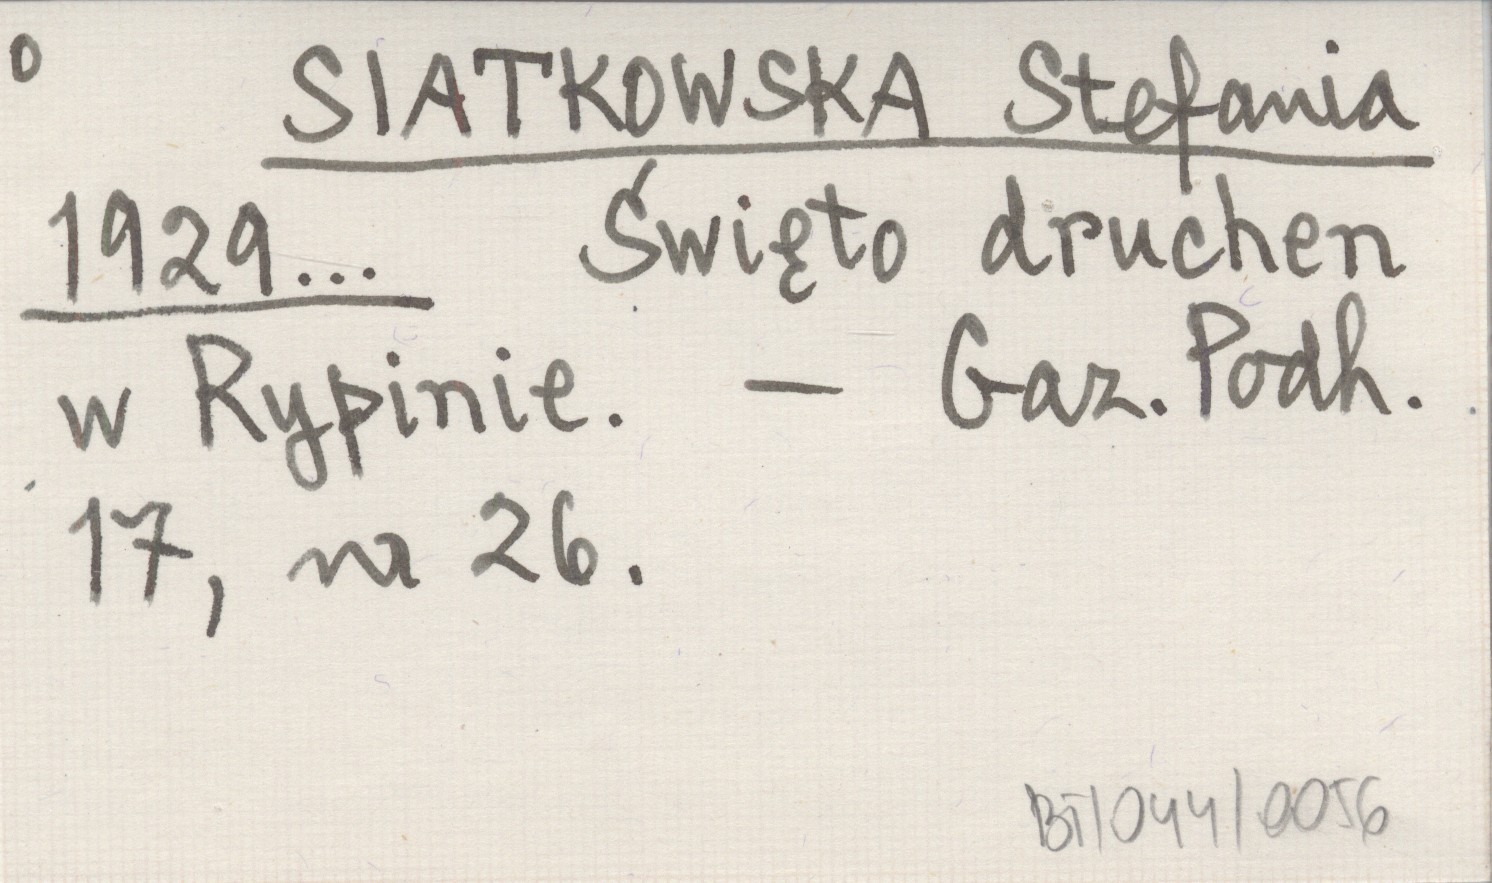 o SIATKOWSKA Stefania
1929... Święto druchen
w Rypinie. — Gaz. Podh.
17, nr 26.
BT/044/0056